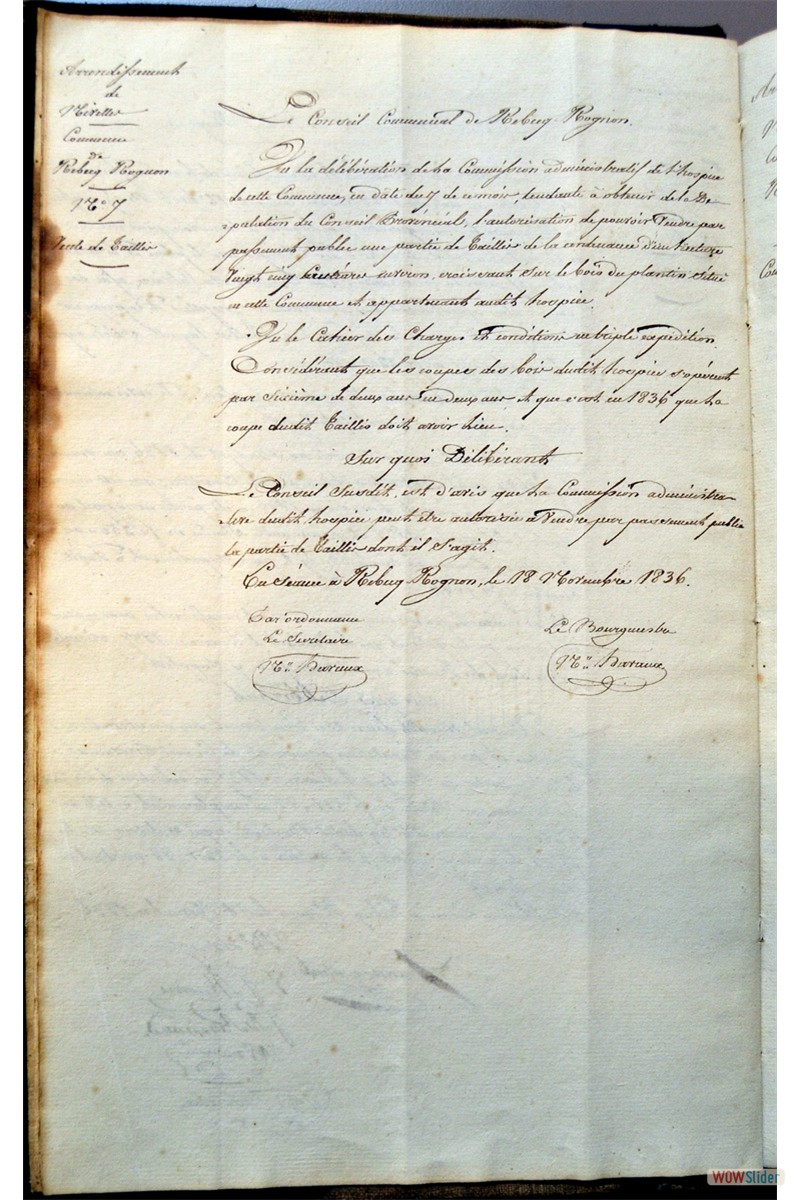 Arrondissement
de
Nivelles
Commune
de
Rebecq Rognon
N.° 7
Vente de Taillis
Le Conseil Communal de Rebecq-Rognon.
Vu la délibération de la Commission administratif de l'hospice
de cette Commune, en date du 7 de ce mois, tendante à obtenir de la Dé
putation du Conseil Provincial, l'autorisation de pouvoir Vendre par
passement public une partie de Taillis de la contenance d'un hectare
Vingt cinq centiares environ, croissant sur le bois du plantin situé
en cette Commune et appartenant audit hospice.
Vu le Cahier des Charges et conditions en triple expédition.
Considérant que les coupes des bois dudit hospice s'opérent
par sixième de deux ans en deux ans et que c'est en 1836 que la
coupe dudit Taillis doit avoir lieu.
Sur quoi Délibérant
Le Conseil Susdit, est d'avis que la Commission administra-
tive dudit hospice peut être autorisée à Vendre par passement public
la partie de Taillis dont il s'agit.
En Séance à Rebecq-Rognon, le 18 Novembre 1836.
Par ordonnance
Le Secrétaire
Le Bourgmestre
WOWSlider